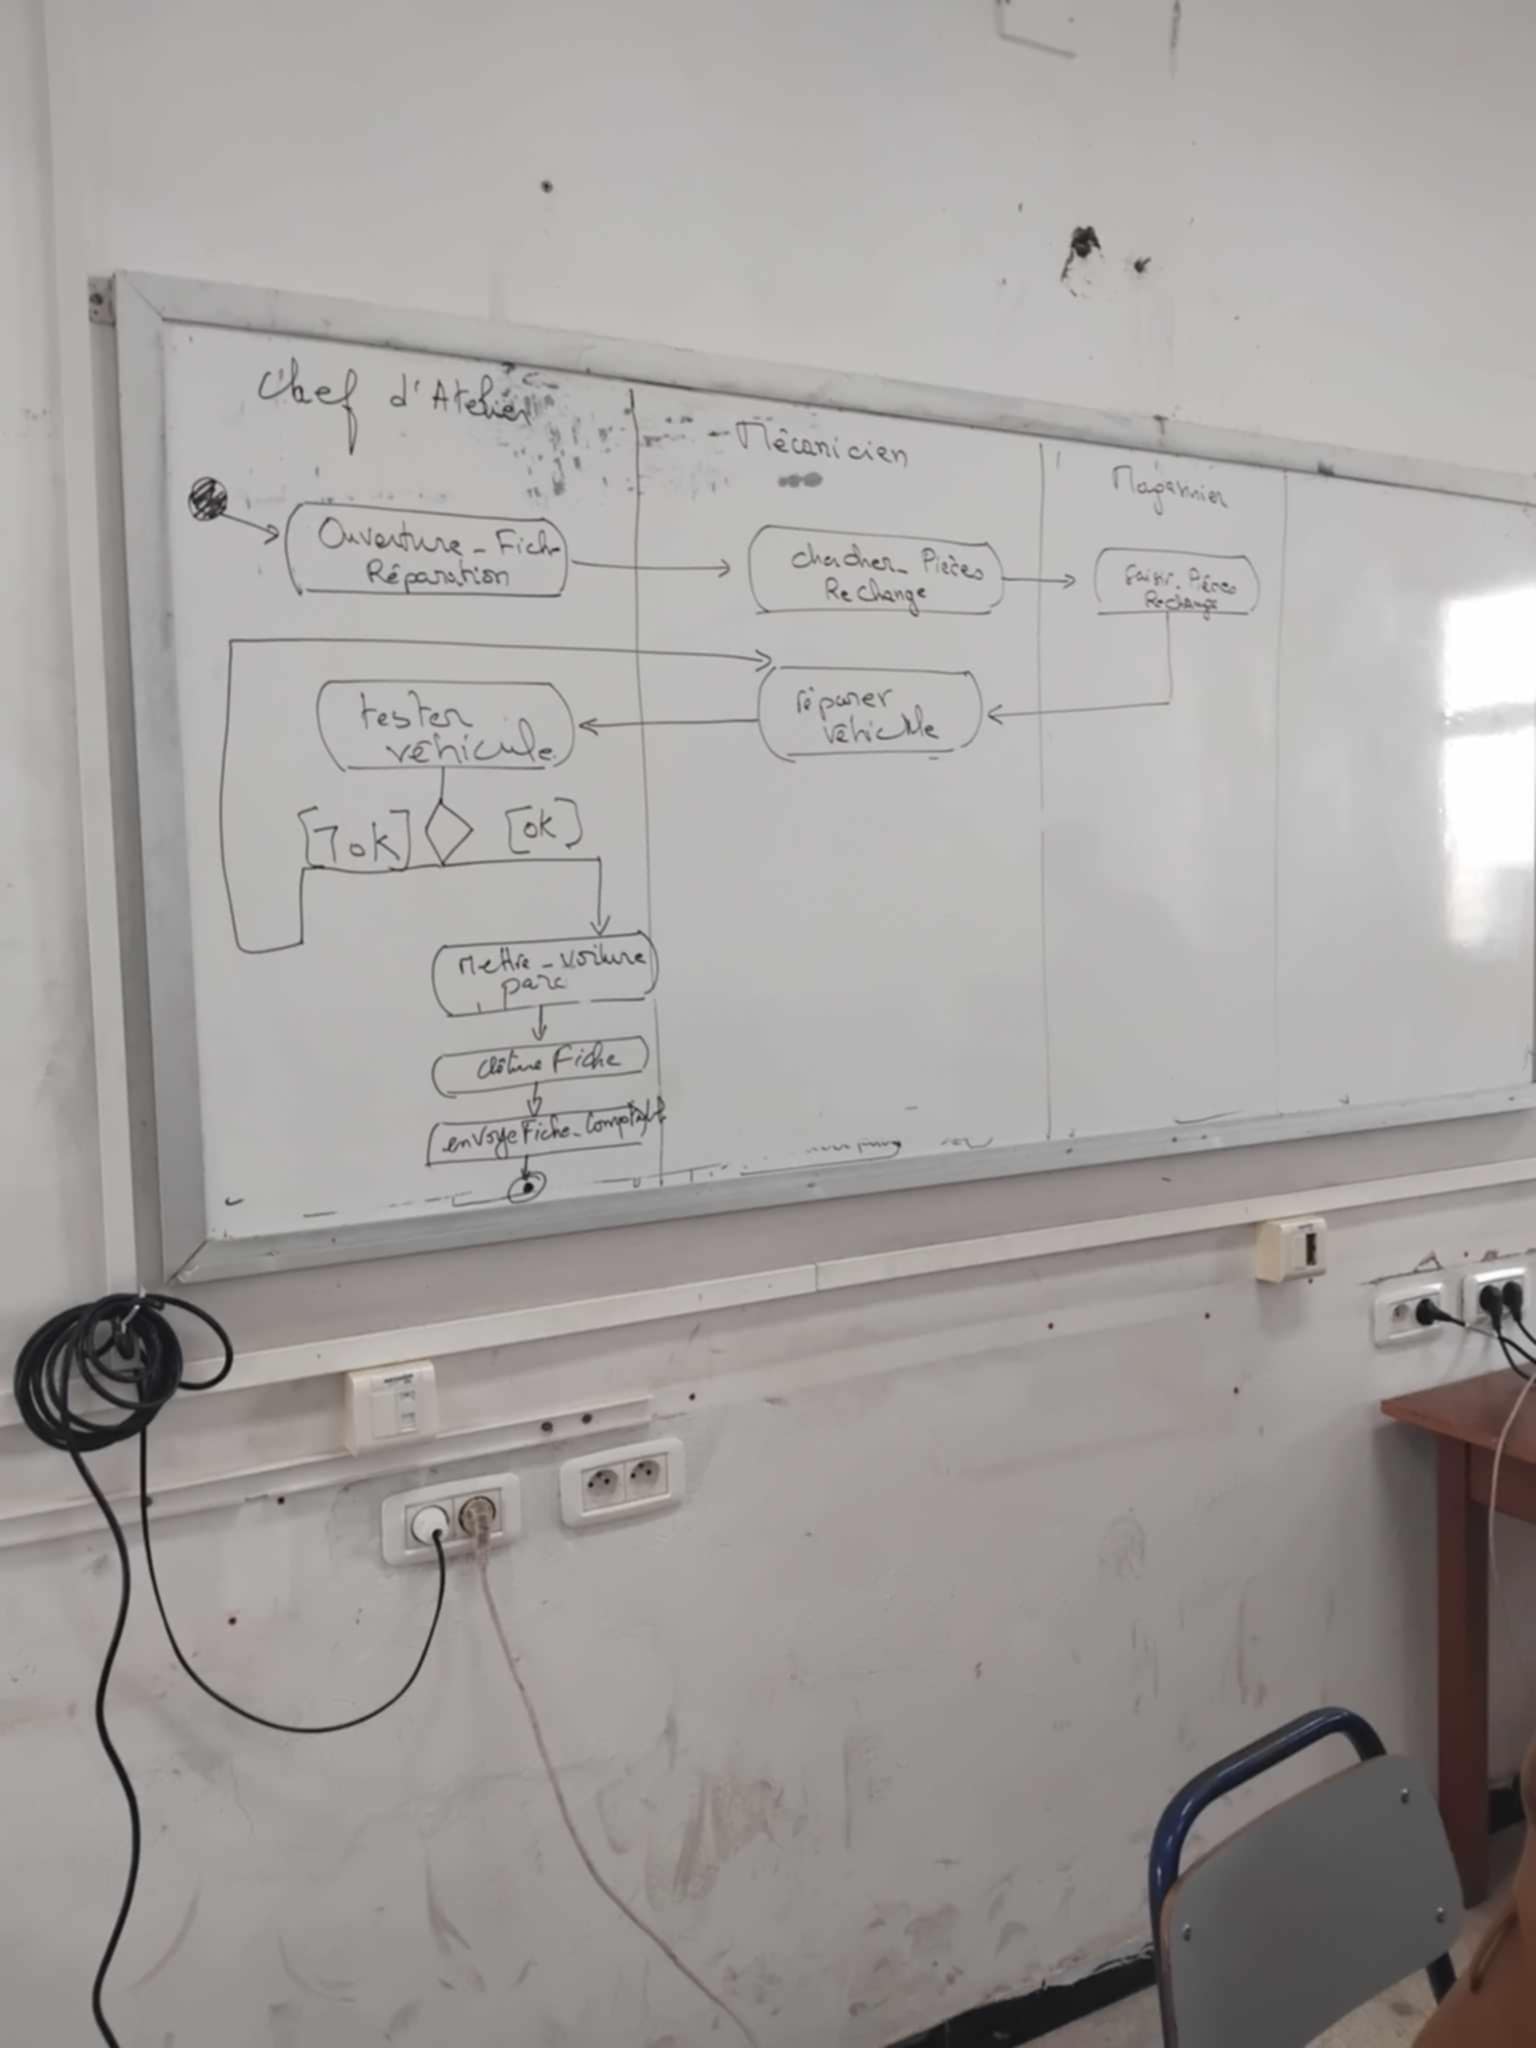 Chef d'Atelier
Mécanicien
Magasinier
Ouverture_Fiche
Réparation
chercher_Pièces
Rechange
saisir_Pièces
Rechange
réparer
véhicule
tester
véhicule
[ꓶok]
[ok]
Mettre_voiture
parc
clôture Fiche
envoyeFiche_Comptable